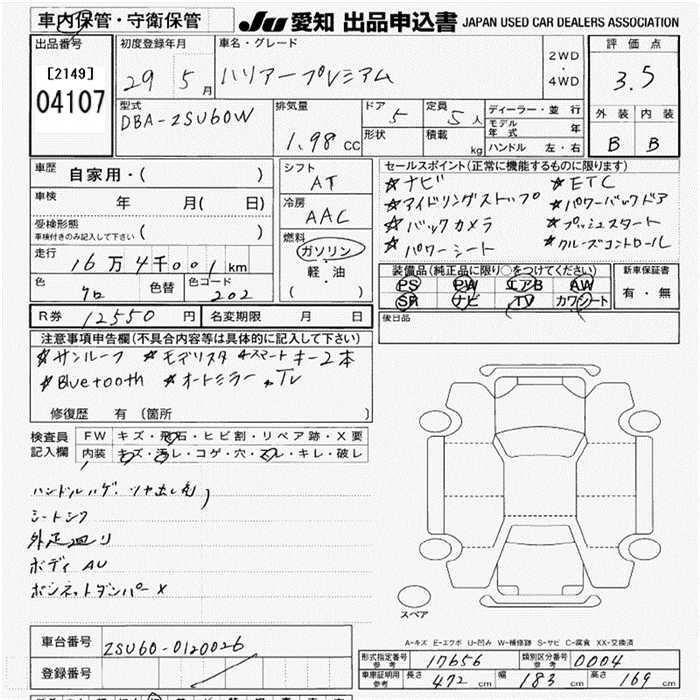 車内保管・守衛保管
JU 愛知 出品申込書 JAPAN USED CAR DEALERS ASSOCIATION
出品番号
[2149]
04107
初度登録年月
29 5月
車名・グレード
ハリアープレミアム
2WD
・
4WD
評価点
3.5
外装 内装
B B
型式
DBA-ZSU60W
排気量
1.98 cc
ドア 5
形状
定員 5人
積載 kg
ディーラー・並行
モデル年式 年
ハンドル 左・右
車歴 自家用・( )
車検 年 月( 日)
受検形態
車検付きのみ記入して下さい ( )
走行 16万4千001km
色 クロ 色替 色コード 202
シフト AT
冷房 AAC
燃料
ガソリン
・
軽・油
( )
セールスポイント(正常に機能するものに限ります)
☆ナビ ☆ETC
☆アイドリングストップ ☆パワーバックドア
☆バックカメラ ☆プッシュスタート
☆パワーシート ☆クルーズコントロール
装備品(純正品に限り○をつけてください)
PS PW エアB AW
SR ナビ TV カワシート
新車保証書
有・無
R券 12550円 名変期限 月 日
後日品
注意事項申告欄(不具合内容等は具体的に記入して下さい)
☆サンルーフ ☆モデリスタ ☆スマートキー2本
☆Bluetooth ☆オートミラー TV
修復歴 有(箇所 )
検査員記入欄
FW キズ・飛石・ヒビ割・リペア跡・X要
内装 キズ・汚レ・コゲ・穴・スレ・キレ・破レ
ハンドルハゲ、ツヤ出し剤
シートシワ
外足廻り
ボディ AU
ボンネットダンパー X
スペア
A-キズ E-エクボ U-凹み W-補修跡 S-サビ C-腐食 XX-交換済
車台番号 ZSU60-0120026
登録番号
形式指定番号 参考 17656 類別区分番号 参考 0004
車庫証明用 参考 長さ 472cm 幅 183cm 高さ 169cm